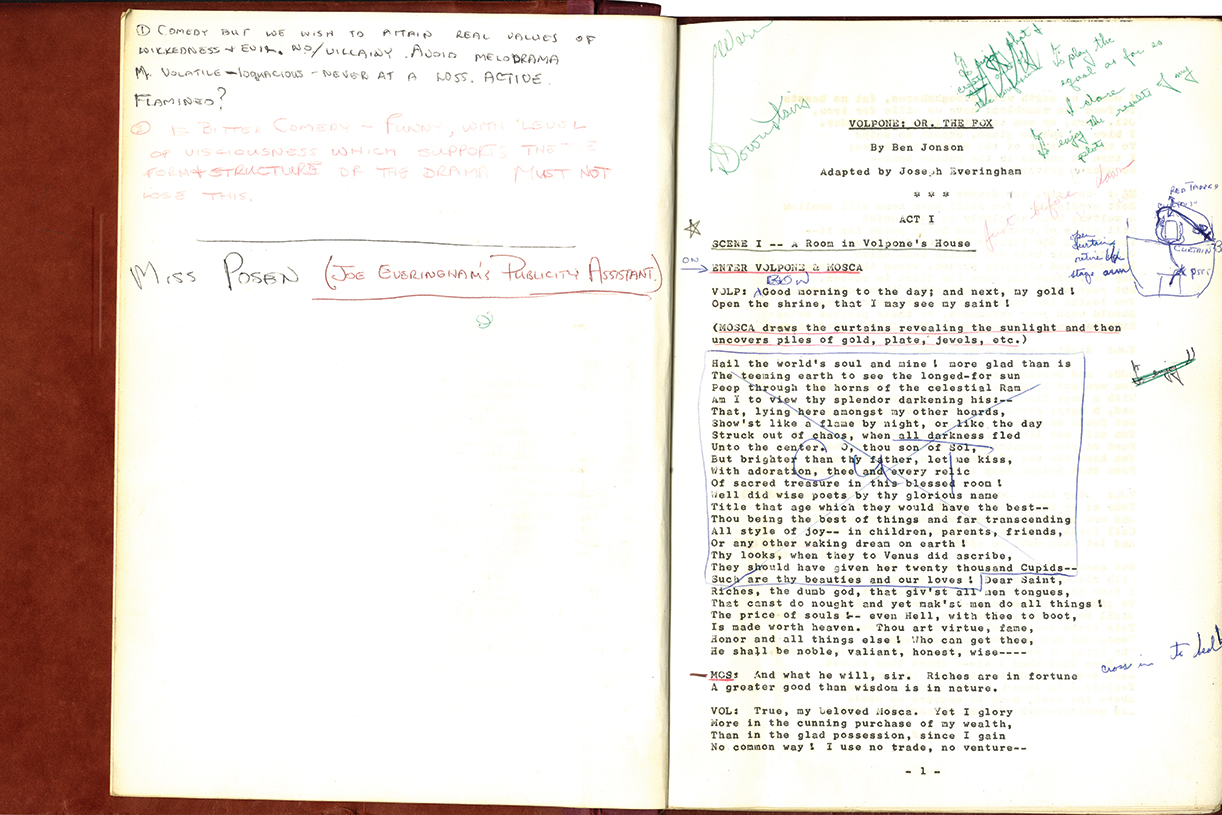 ① COMEDY BUT WE WISH TO ATTAIN REAL VALUES OF
WIKKEDNESS + EVIL. NO/VILLAINY. AVOID MELODRAMA
M. VOLATILE - LOQUACIOUS - NEVER AT A LOSS. ACTIVE.
FLAMINEO?
② BITTER COMEDY - FUNNY, WITH LEVEL
OF VISCIOUSNESS WHICH SUPPORTS THE
FORM + STRUCTURE OF THE DRAMA MUST NOT
LOSE THIS.
MISS POSEN (JOE EVERINGHAM'S PUBLICITY ASSISTANT.)
Warn
Downstairs
to play the
equal as far as
I dare
to enjoy the results of my
plots
VOLPONE: OR, THE FOX
By Ben Jonson
Adapted by Joseph Everingham
* * *
ACT I
just before down
RED TANKS
CURTAIN
open
curtains
stage arm
SCENE I -- A Room in Volpone's House
ON
ENTER VOLPONE & MOSCA
BOW
VOLP: Good morning to the day; and next, my gold!
Open the shrine, that I may see my saint!
(MOSCA draws the curtains revealing the sunlight and then
uncovers piles of gold, plate, jewels, etc.)
Hail the world's soul and mine! more glad than is
The teeming earth to see the longed-for sun
Peep through the horns of the celestial Ram
Am I to view thy splendor darkening his:--
That, lying here amongst my other hoards,
Show'st like a flame by night, or like the day
Struck out of chaos, when all darkness fled
Unto the center. O, thou son of Sol,
But brighter than thy father, let me kiss,
With adoration, thee and every relic
Of sacred treasure in this blessed room!
Well did wise poets by thy glorious name
Title that age which they would have the best--
Thou being the best of things and far transcending
All style of joy-- in children, parents, friends,
Or any other waking dream on earth!
Thy looks, when they to Venus did ascribe,
They should have given her twenty thousand Cupids--
Such are thy beauties and our loves! Dear Saint,
Cut
to enjoy
Riches, the dumb god, that giv'st all men tongues,
That canst do nought and yet mak'st men do all things!
The price of souls!-- even Hell, with thee to boot,
Is made worth heaven. Thou art virtue, fame,
Honor and all things else! Who can get thee,
He shall be noble, valiant, honest, wise----
cross in to bed
MOS: And what he will, sir. Riches are in fortune
A greater good than wisdom is in nature.
VOL: True, my beloved Mosca. Yet I glory
More in the cunning purchase of my wealth,
Than in the glad possession, since I gain
No common way! I use no trade, no venture--
- 1 -